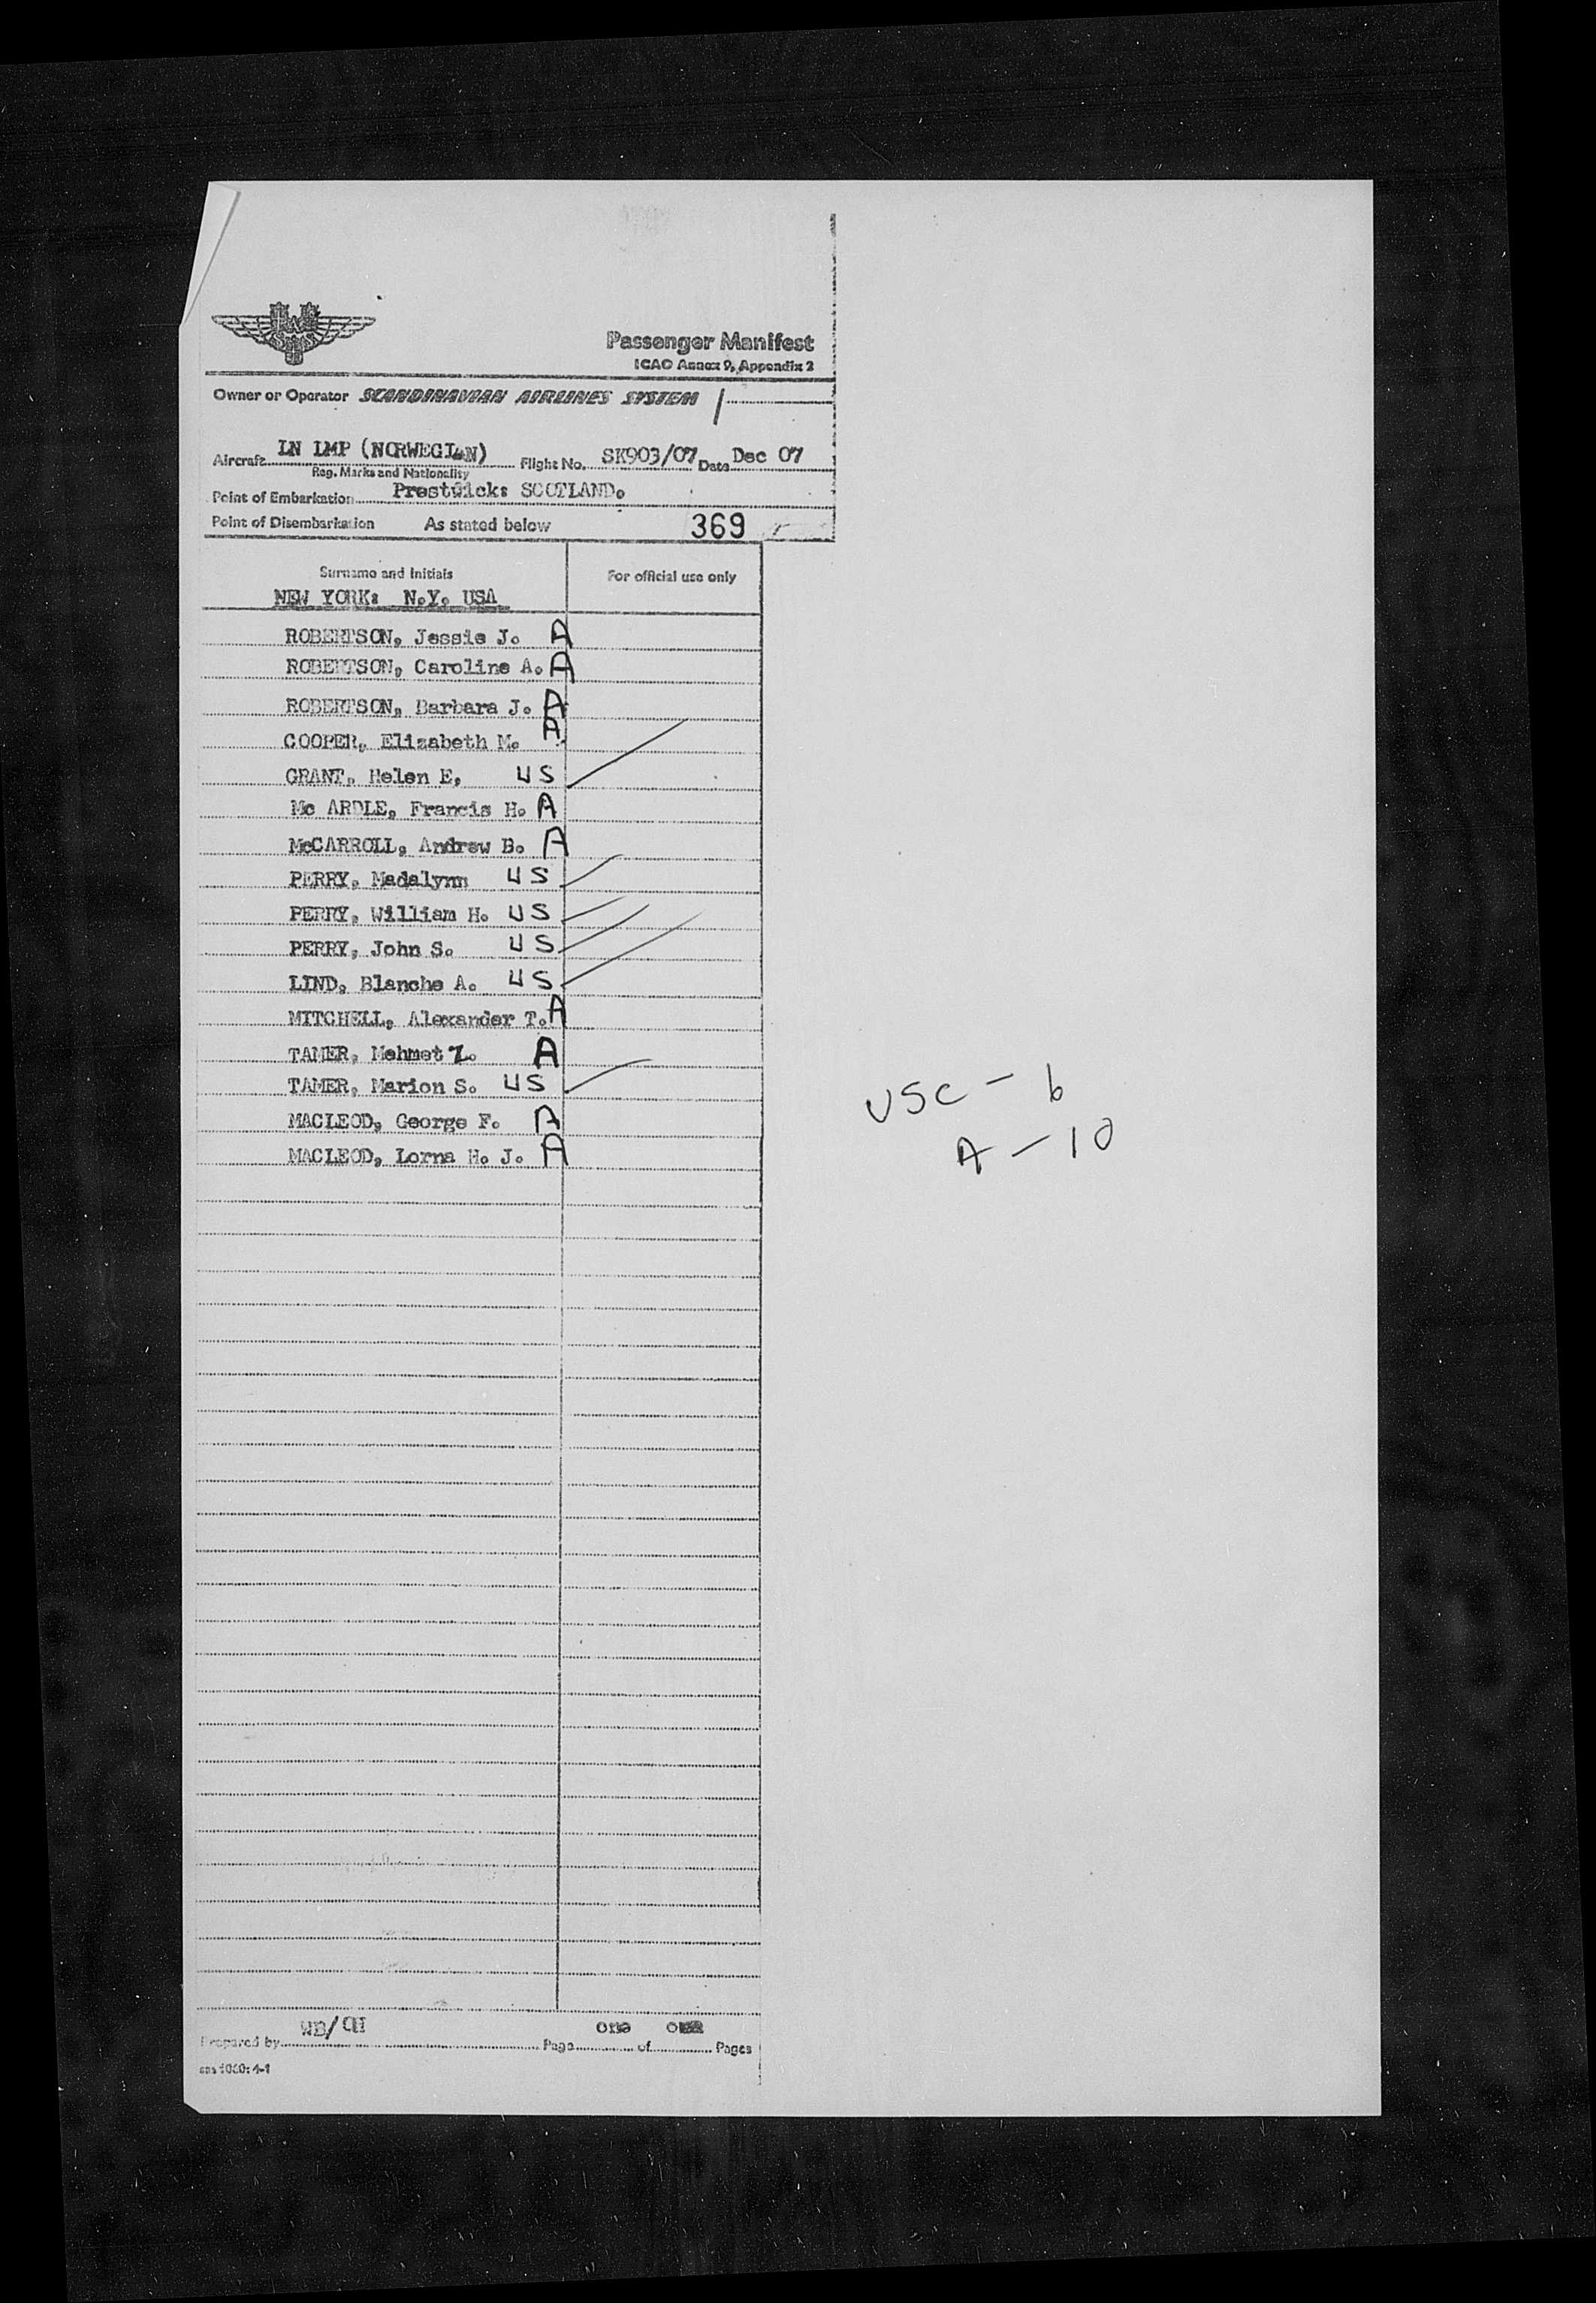 Passenger Manifest
ICAO Annex 9, Appendix 2
Owner or Operator SCANDINAVIAN AIRLINES SYSTEM
Aircraft LN LMP (NORWEGIAN) Flight No. SK903/07 Date Dec 07
Reg. Marks and Nationality
Point of Embarkation Prestwick: SCOTLAND.
Point of Disembarkation As stated below 369
Surname and Initials For official use only
NEW YORK: N.Y. USA
ROBERTSON, Jessie J. A
ROBERTSON, Caroline A. A
ROBERTSON, Barbara J. A
COOPER, Elizabeth M. A
GRANT, Helen E. US
Mc ARDLE, Francis H. A
McCARROLL, Andrew B. A
PERRY, Madalynn US
PERRY, William H. US
PERRY, John S. US
LIND, Blanche A. US
MITCHELL, Alexander T. A
TAMER, Mehmet Z. A
TAMER, Marion S. US
MACLEOD, George F. A
MACLEOD, Lorna H. J. A
USC - 6
A - 10
Prepared by WB/ Page one of one Pages
sas 1060: 4-1